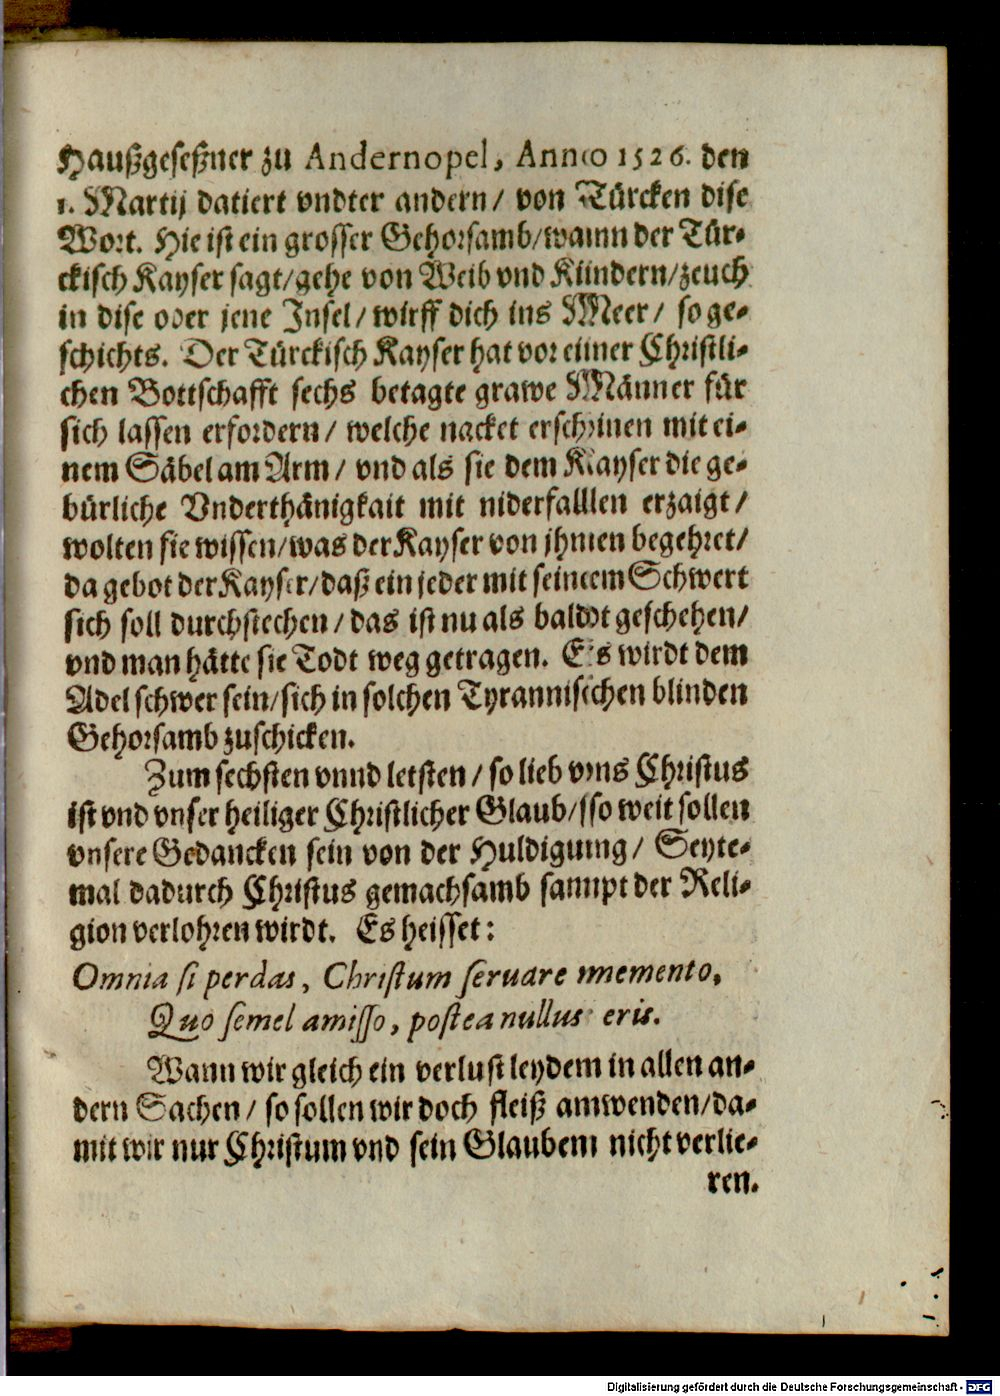 Haußgeseßner zu Andernopel, Anno 1526. den
1. Martij datiert vndter andern/ von Türcken dise
Wort. Hie ist ein grosser Gehorsamb/wann der Tür-
ckisch Kayser sagt/gehe von Weib vnd Kindern/zeuch
in dise oder jene Insel/ wirff dich ins Meer/ so ge-
schichts. Der Türckisch Kayser hat vor einer Christli-
chen Bottschafft sechs betagte grawe Männer für
sich lassen erfordern/ welche nacket erschinen mit ei-
nem Säbel am Arm/ vnd als sie dem Kayser die ge-
bürliche Vnderthänigkait mit niderfalllen erzaigt/
wolten sie wissen/was der Kayser von jhnen begehret/
da gebot der Kayser/daß ein jeder mit seinem Schwert
sich soll durchstechen/ das ist nu als baldt geschehen/
vnd man hätte sie Todt weg getragen. Es wirdt dem
Adel schwer sein/sich in solchen Tyrannischen blinden
Gehorsamb zuschicken.
Zum sechsten vnnd letsten/ so lieb vns Christus
ist vnd vnser heiliger Christlicher Glaub/so weit sollen
vnsere Gedancken sein von der Huldigung/ Seyte-
mal dadurch Christus gemachsamb sampt der Reli-
gion verlohren wirdt. Es heisset:
Omnia si perdas, Christum seruare memento,
Quo semel amisso, postea nullus eris.
Wann wir gleich ein verlust leyden in allen an-
dern Sachen/ so sollen wir doch fleiß anwenden/da-
mit wir nur Christum vnd sein Glauben nicht verlie-
ren.
Digitalisierung gefördert durch die Deutsche Forschungsgemeinschaft - DFG